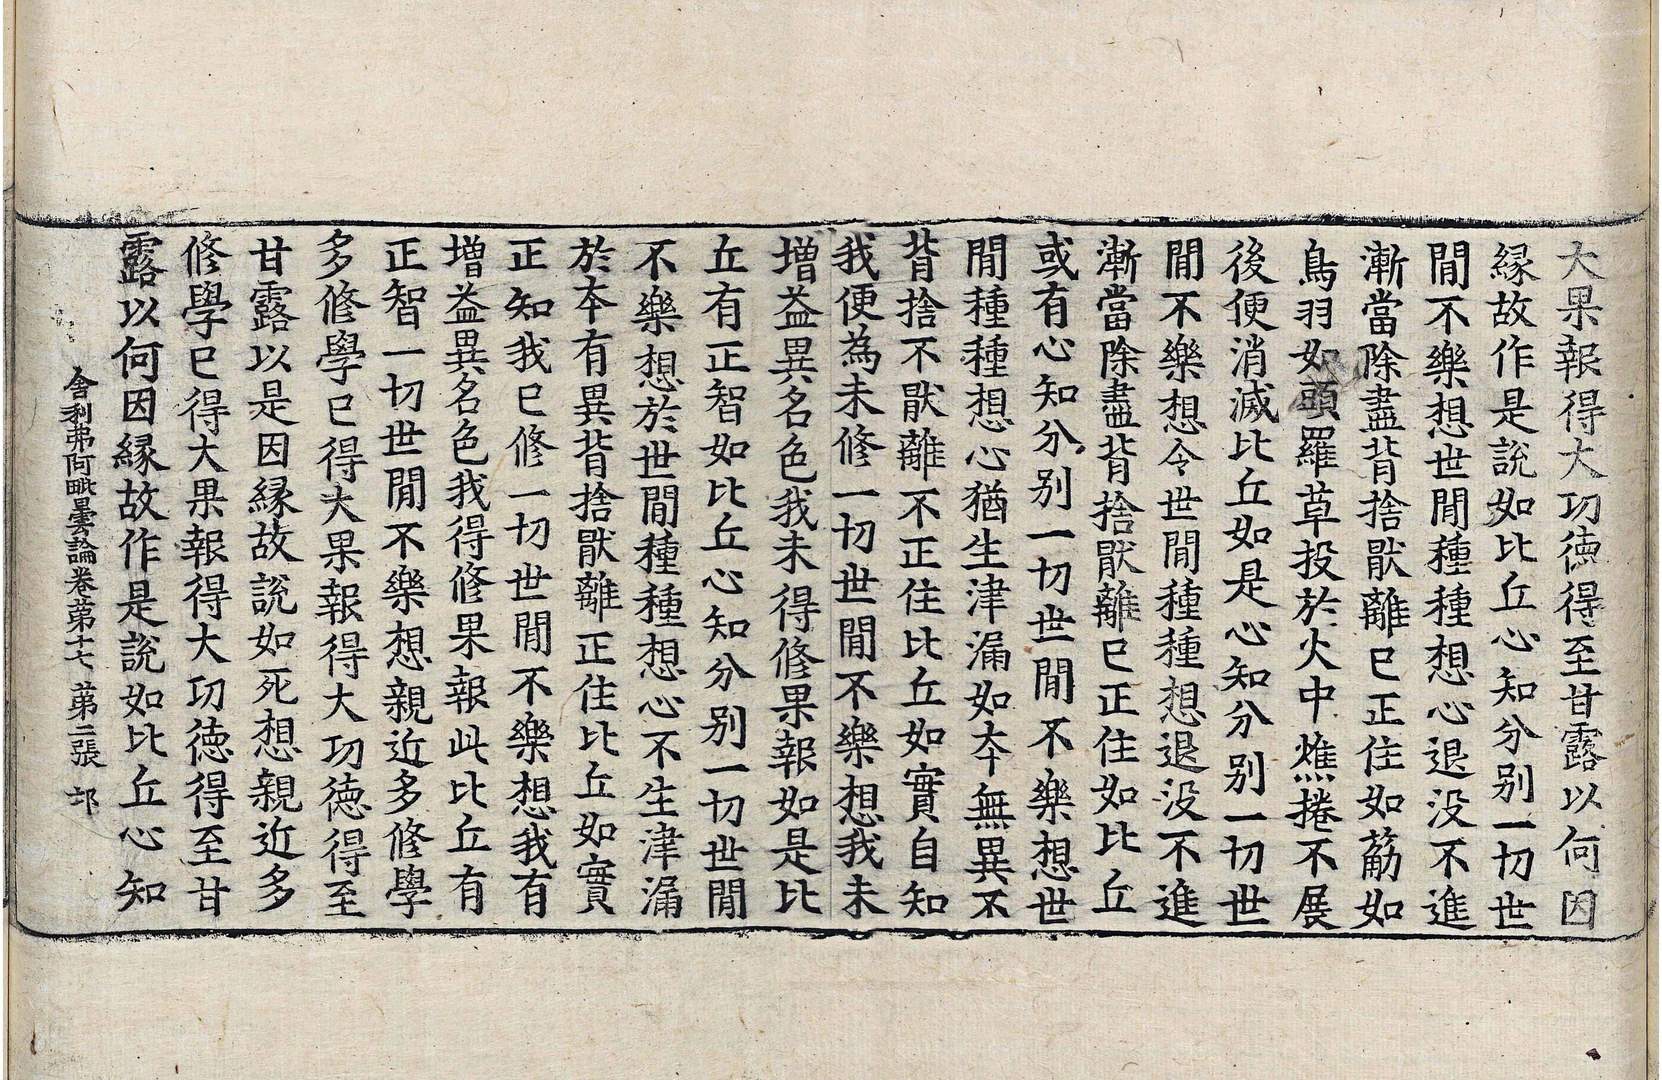 大果報得大功徳得至甘露以何因
縁故作是說如比丘心知分别一切世
閒不樂想世閒種種想心退没不進
漸當除盡背捨猒離已正住如筋如
鳥羽如頭羅草投於火中燋捲不展
後便消滅比丘如是心知分别一切世
閒不樂想令世閒種種想退没不進
漸當除盡背捨猒離已正住如比丘
或有心知分别一切世閒不樂想世
閒種種想心猶生津漏如夲無異不
背捨不猒離不正住比丘如實自知
我便為未修一切世閒不樂想我未
增益異名色我未得修果報如是比
丘有正智如比丘心知分别一切世閒
不樂想於世閒種種想心不生津漏
於夲有異背捨猒離正住比丘如實
正知我已修一切世閒不樂想我有
增益異名色我得修果報此比丘有
正智一切世閒不樂想親近多修學
多修學已得大果報得大功徳得至
甘露以是因縁故說如死想親近多
修學已得大果報得大功徳得至甘
露以何因縁故作是說如比丘心知
舎利弗阿毗曇論卷苐十七 苐二張 邙